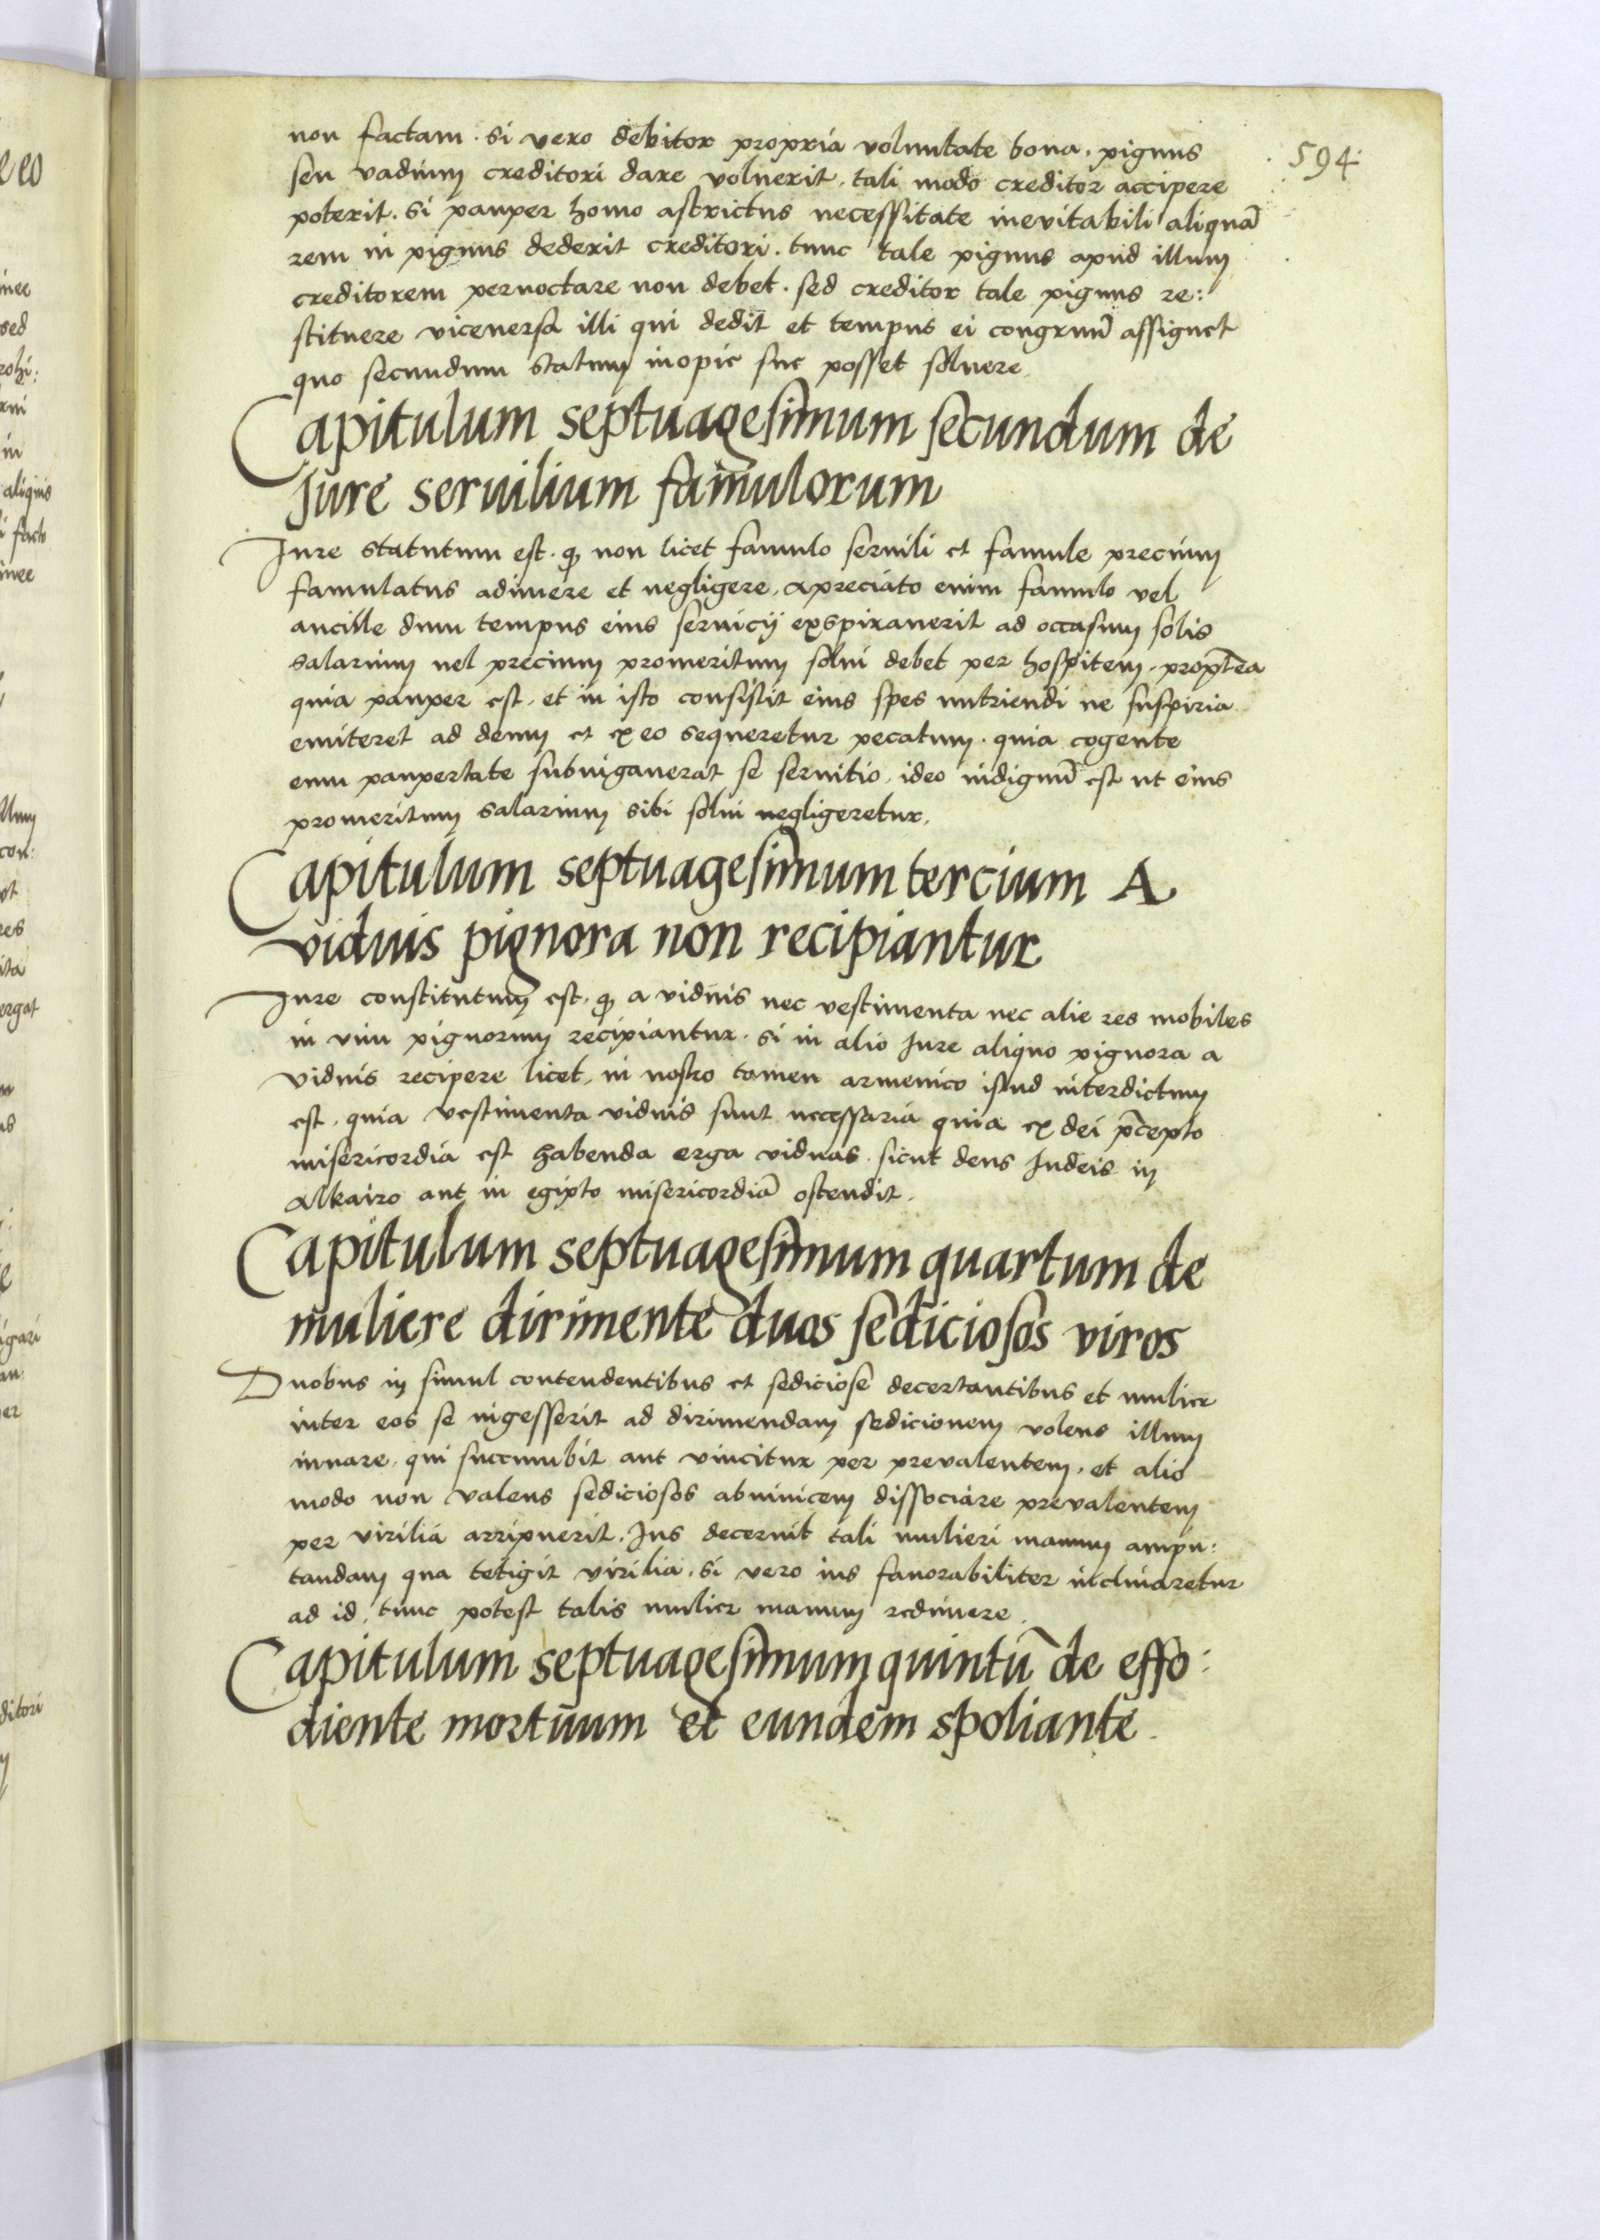 594
non factam. si vero debitor propria voluntate bona. pignus
seu vadium creditori dare voluerit. tali modo creditor accipere
poterit. si pauper homo astrictus necessitate inevitabili aliquā
rem in pignus dederit creditori. tunc tale pignus apud illum
creditorem pernoctare non debet. sed creditor tale pignus re:
stituere viceuersa illi qui dedit et tempus ei congruū assignet
quo secundum statum inopie sue posset soluere
Capitulum septuagesimum secundum de
Jure seruilium famulorum
Jure statutum est. ꝙ non licet famulo seruili et famule precium
famulatus adimere et negligere. apreciato enim famulo vel
ancille dum tempus eius seruicij exspirauerit ad occasum solis
salarium uel precium promeritum solui debet per hospitem. propterea
quia pauper est. et in isto consistit eius spes nutriendi ne suspiria
emiteret ad deum et ex eo sequeretur pecatum. quia cogente
eum paupertate subiugauerat se seruitio. ideo indignū est ut eius
promeritum salarium sibi solui negligeretur.
Capitulum septuagesimum tercium A
viduis pignora non recipiantur
Jure constitutum est. ꝙ a viduis nec vestimenta nec alie res mobiles
in vim pignorum recipiantur. si in alio Jure aliquo pignora a
viduis recipere licet. in nostro tamen armenico istud interdictum
est. quia vestimenta viduis sunt necessaria quia ex dei p̄cepto
misericordia est habenda erga viduas. sicut deus Judeis in
Alkairo aut in egipto misericordiā ostendit.
Capitulum septuagesimum quartum de
muliere dirimente duos sediciosos viros
Duobus in simul contendentibus et sediciose decertantibus et mulier
inter eos se ingesserit ad dirimendam sedicionem volens illum
iuuare. qui succumbit aut vincitur per prevalentem. et alio
modo non valens sediciosos abinuicem dissociare prevalentem
per virilia arripuerit. Jus decernit tali mulieri manum ampu:
tandam qua tetigit virilia. si vero ius fauorabiliter inclinaretur
ad id. tunc potest talis mulier manum redimere.
Capitulum septuagesimum quintū de effo:
diente mortuum et eundem spoliante.